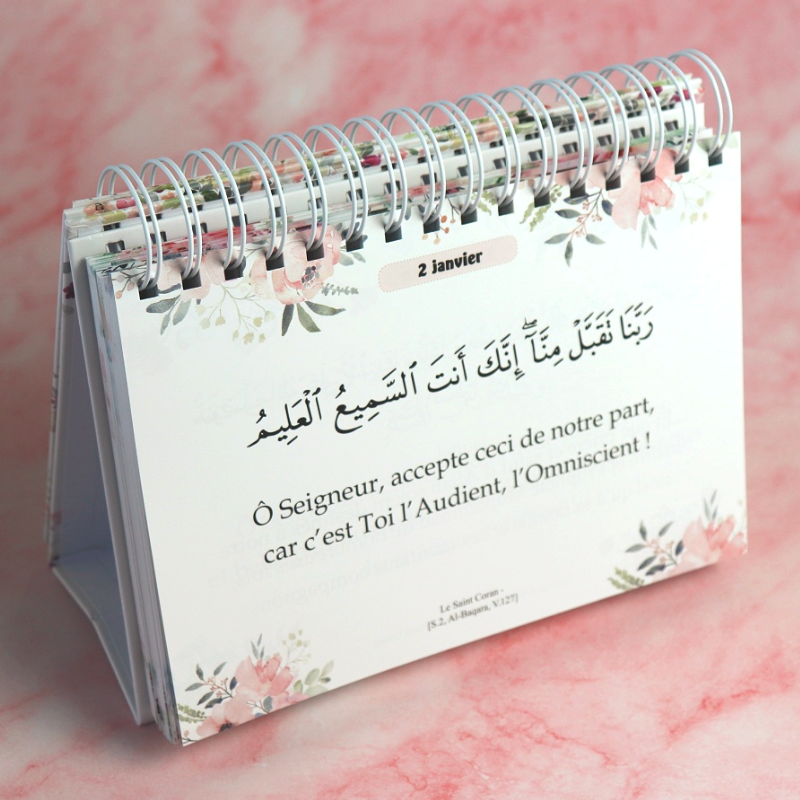 2 janvier
رَبَّنَا تَقَبَّلْ مِنَّآ ۖ إِنَّكَ أَنتَ ٱلسَّمِيعُ ٱلْعَلِيمُ
Ô Seigneur, accepte ceci de notre part,
car c’est Toi l’Audient, l’Omniscient !
Le Saint Coran -
[S.2, Al-Baqara, V.127]